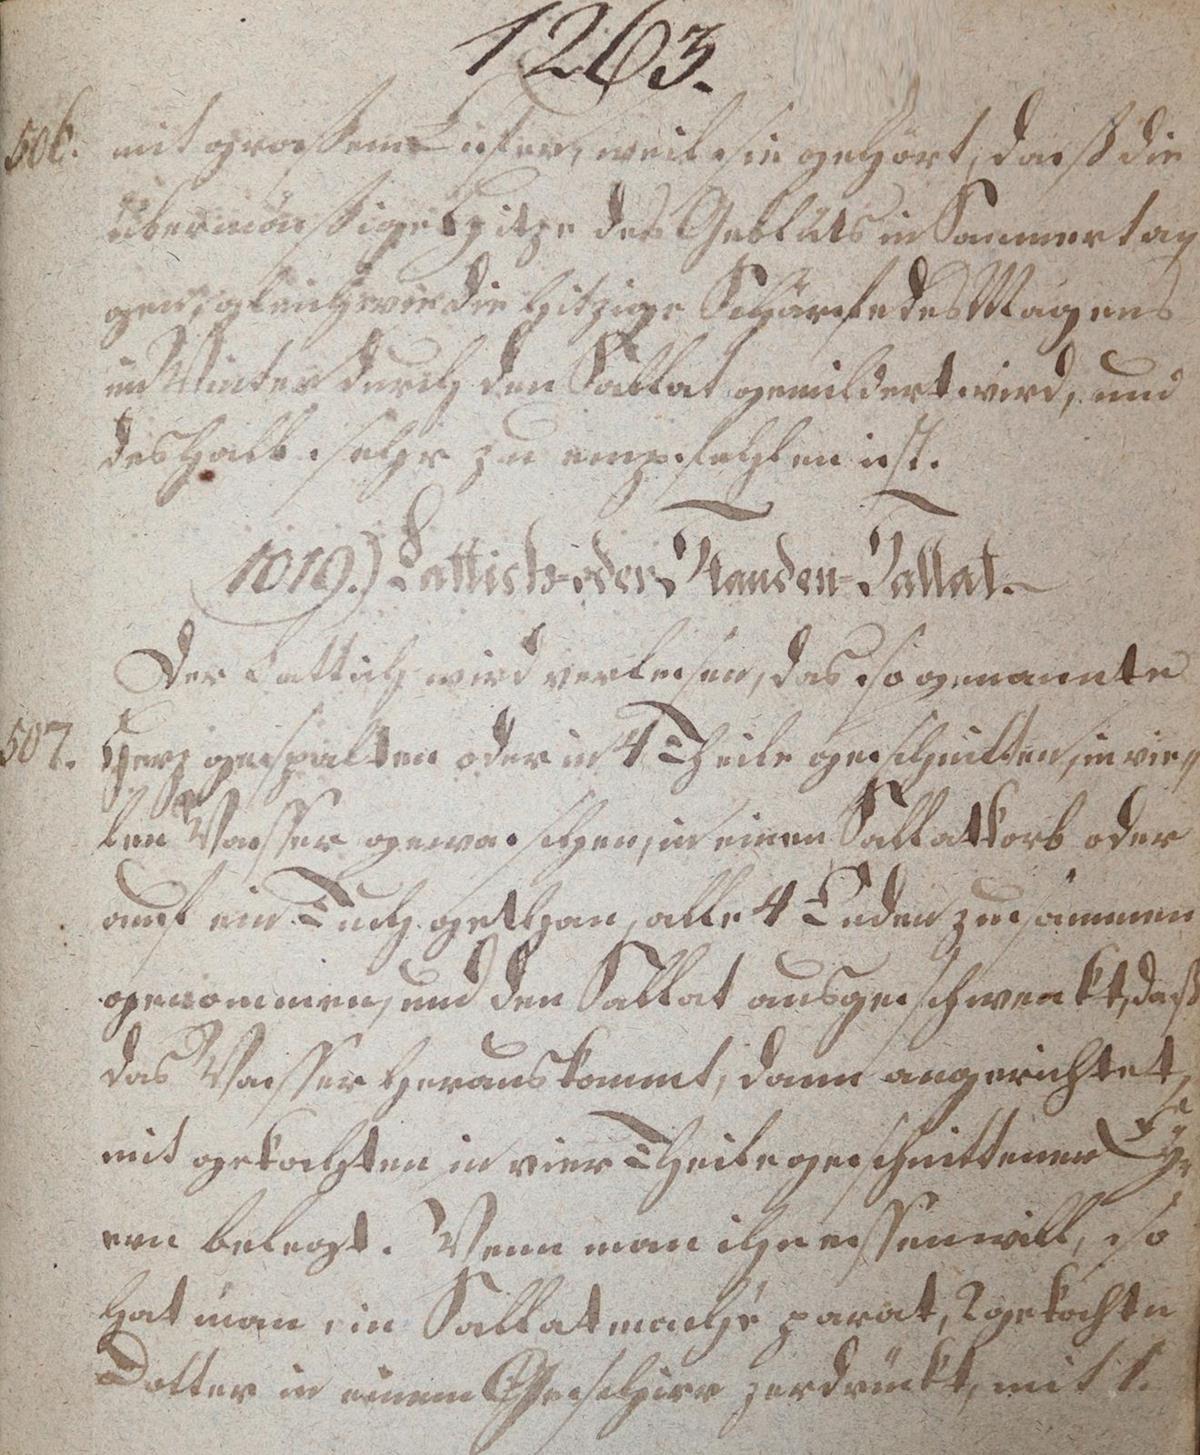 1263.
506. mit großem Eifer, weil sie gehört, daß die
übermäßige Hitze des Geblüts in Sommertag
gen, gleichwie die hitzige Schärfe des Magens
im Winter durch den Sallat gemildert wird, und
deshalb sehr zu empfehlen ist.
1019.) Lattich- oder Stauden-Sallat.
Der Lattich wird verlesen, das so genannte
507. Herz gespalten oder in 4 Theile geschnitten, in vie-
len Wasser gewaschen, in einen Sallatkorb oder
auf ein Tuch gethan, alle 4 Enden zusammen
genommen, und den Sallat ausgeschwenkt, daß
das Wasser herauskommt, dann angerichtet,
mit gekochten in vier Theile geschnittenen Ey-
ern belegt. Wenn man ihn essen will, so
hat man ein Sallat parat, 2 gekochte
Dotter in einem Geschirr zerdrückt, mit 1.